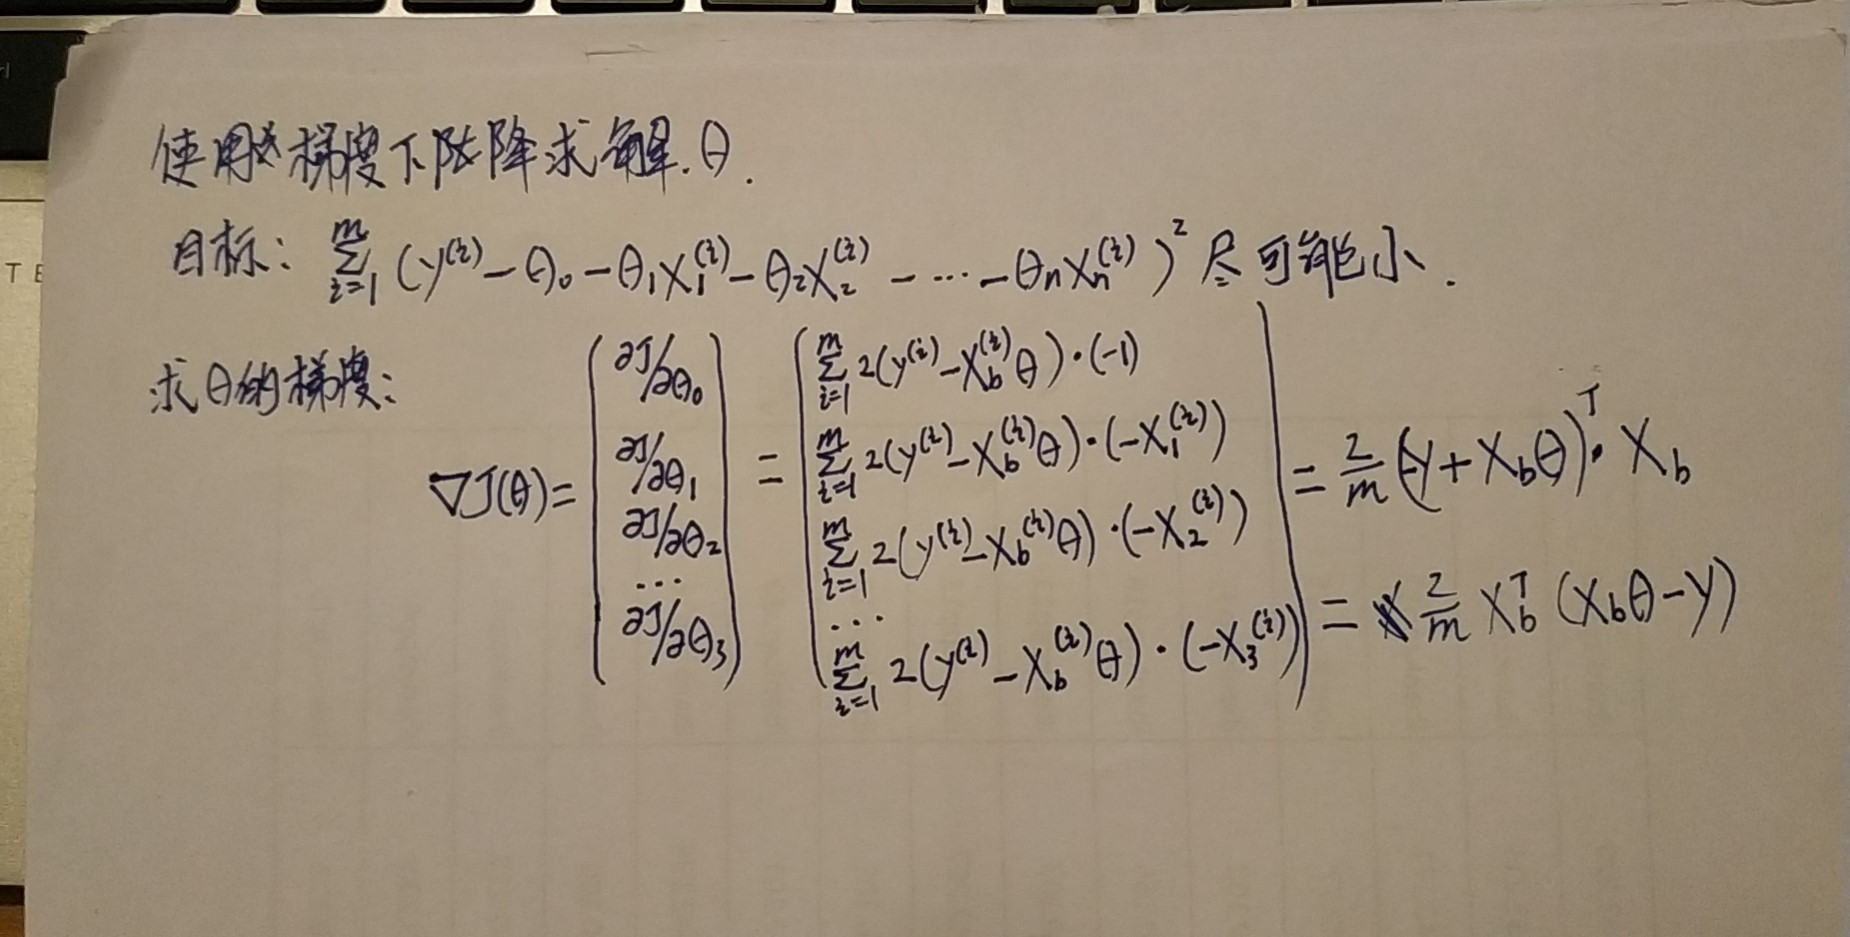 使用梯度下降求解.θ.
目标: \sum_{i=1}^{m} (y^{(i)} - θ_0 - θ_1 X_1^{(i)} - θ_2 X_2^{(i)} - ... - θ_n X_n^{(i)})^2 尽可能小.
求θ的梯度:
∇J(θ) = \begin{pmatrix} ∂J/∂θ_0 \\ ∂J/∂θ_1 \\ ∂J/∂θ_2 \\ ... \\ ∂J/∂θ_3 \end{pmatrix} = \begin{pmatrix} \sum_{i=1}^{m} 2(y^{(i)} - X_b^{(i)}θ)·(-1) \\ \sum_{i=1}^{m} 2(y^{(i)} - X_b^{(i)}θ)·(-X_1^{(i)}) \\ \sum_{i=1}^{m} 2(y^{(i)} - X_b^{(i)}θ)·(-X_2^{(i)}) \\ ... \\ \sum_{i=1}^{m} 2(y^{(i)} - X_b^{(i)}θ)·(-X_3^{(i)}) \end{pmatrix} = \frac{2}{m} (-y + X_bθ)^T · X_b
= \frac{2}{m} X_b^T (X_bθ - y)
T E